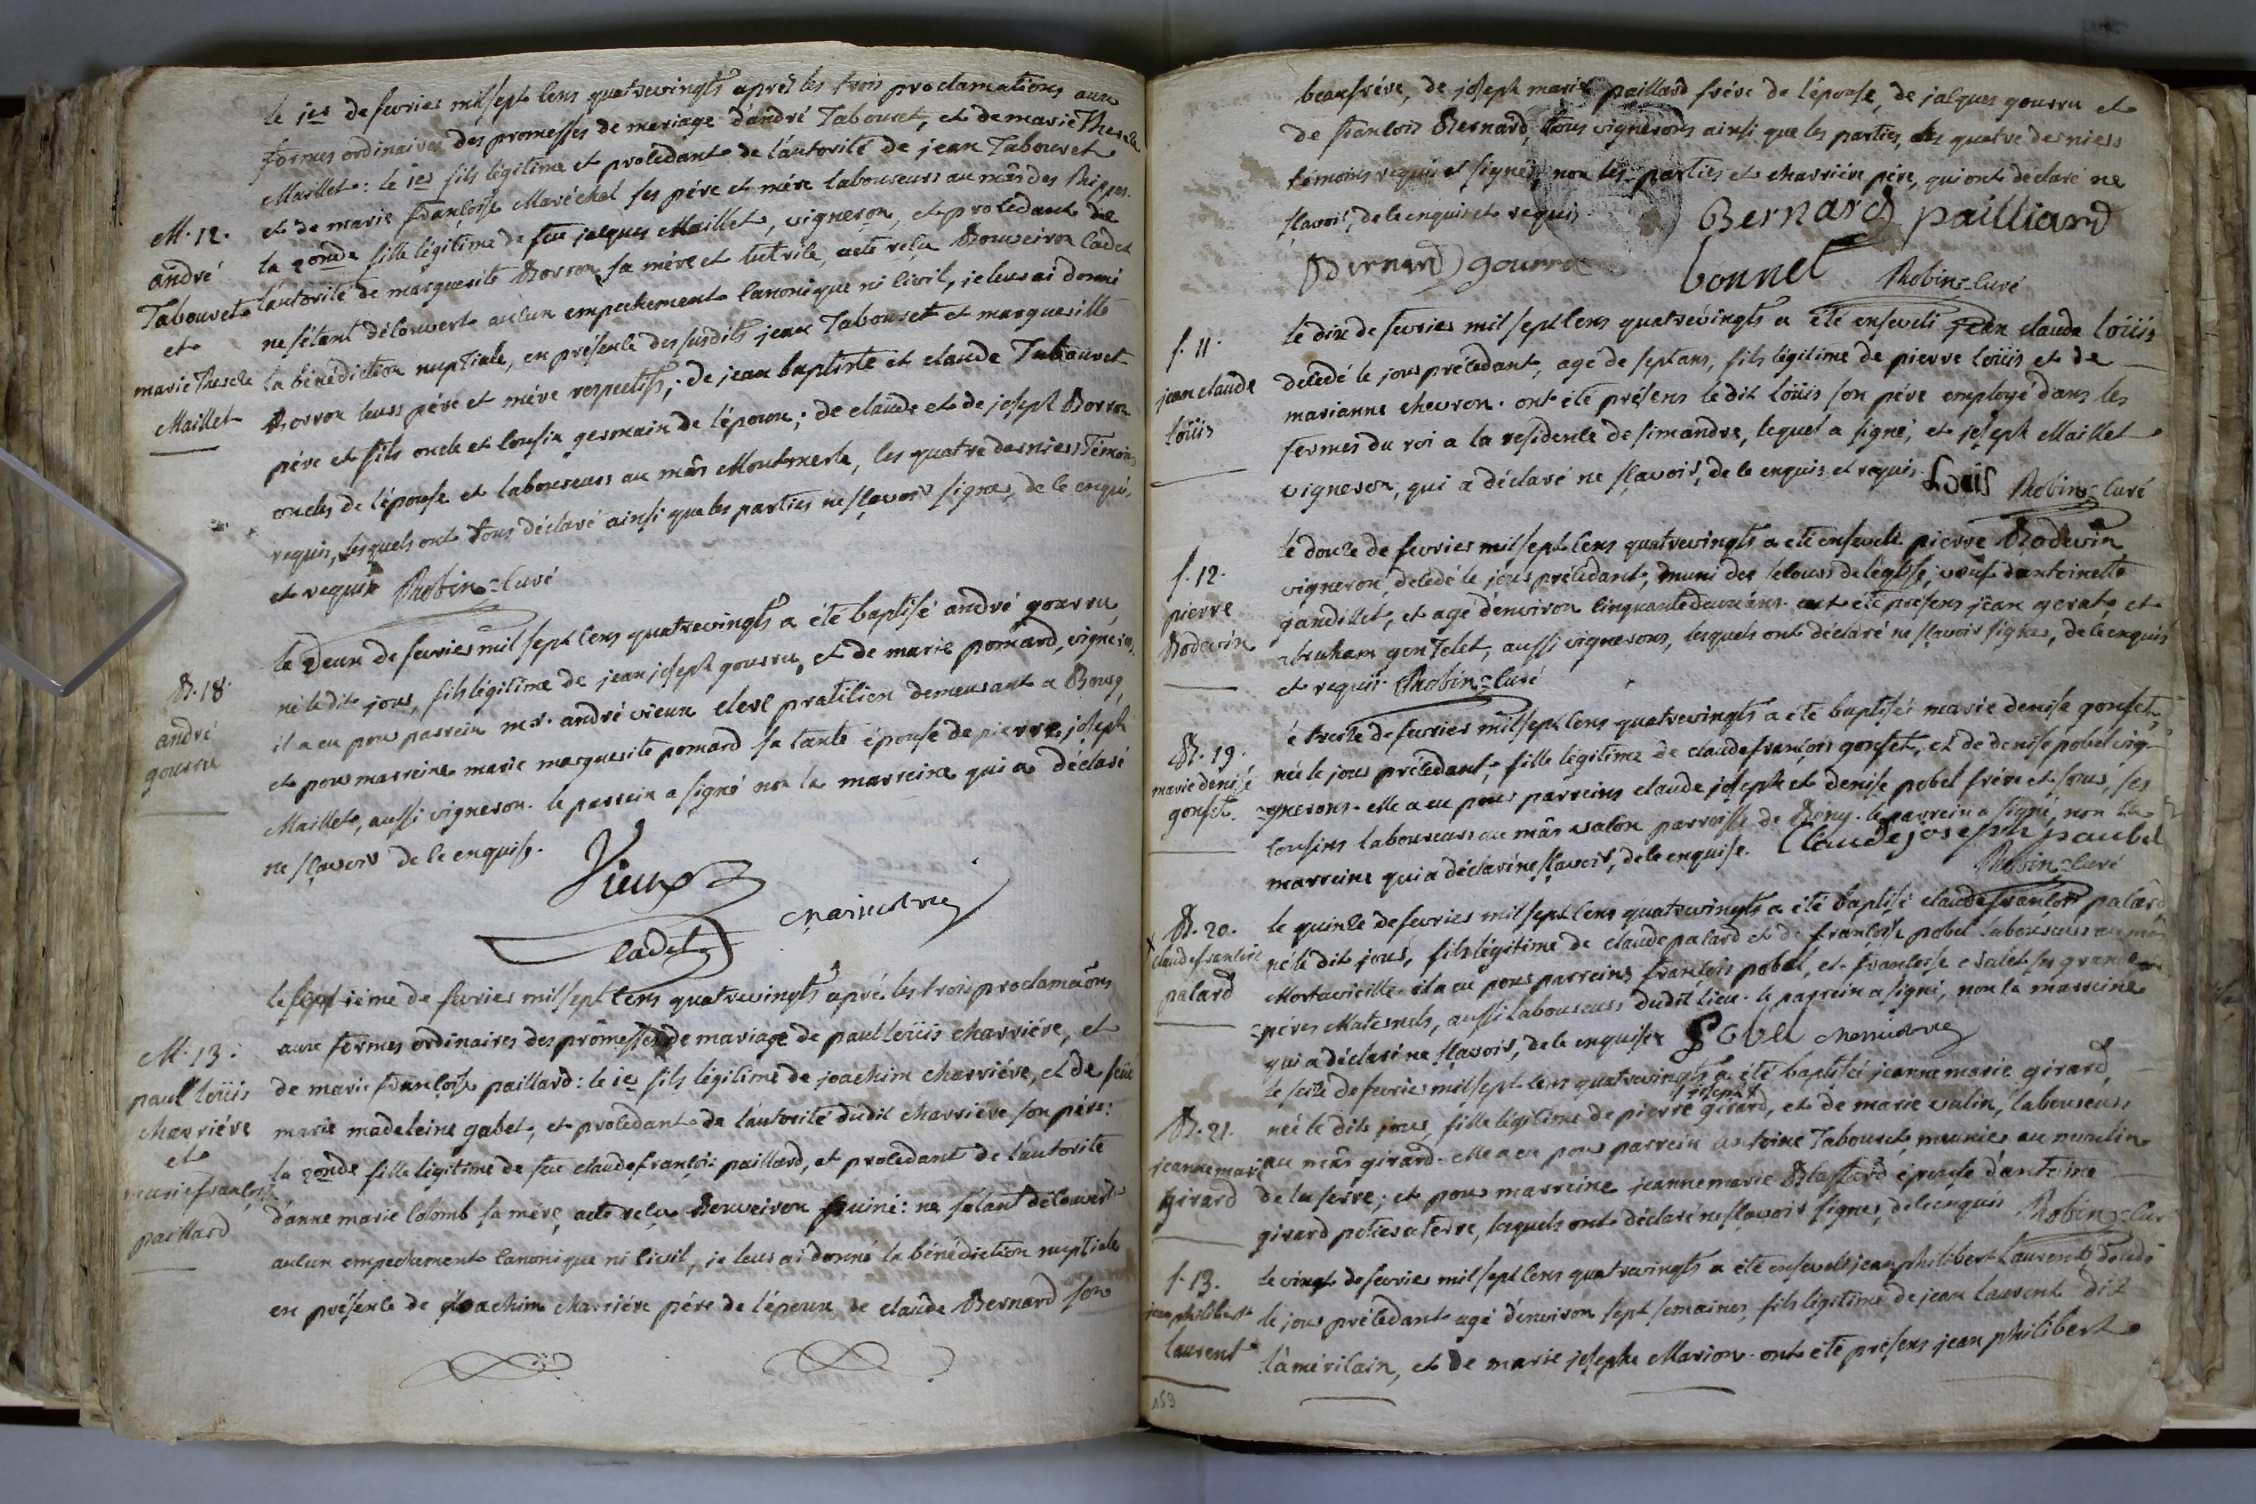 le 1er de fevrier mil sept cens quatrevingts après les trois proclamations aux
formes ordinaires des promesses de mariage d'andré Tabouret, et de marie Therese
Maillet: le 1er fils légitime et procedant de l'autorité de jean Tabouret
et de marie françoise Maréchal ses pére et mére laboureurs au mâs des
M. 12.
andré
Tabouret
et
marie Therese
Maillet
la 2onde fille légitime de feu jacques Maillet, vigneron, et procedant de
l'autorité de marguerite Borron sa mére et tutrice, acte reçu Bouveiron cadet
ne s'étant découvert aucun empechement canonique ni civil, je leur ai donné
la bénédiction nuptiale, en présence des susdits jean Tabouret et marguerite
Borron leurs pére et mére respectifs; de jean baptiste et claude Tabouret
pére et fils oncle et cousin germain de l'époux; de claude et de joseph Borron
oncles de l'épouse et laboureurs au mâs Montmerle, les quatre derniers Témoins
requis, lesquels ont tous déclaré ainsi que les parties ne sçavoir signer, de ce enquis
et requis Robin=curé
B. 18.
andré
gourru
le Deux de fevrier mil sept cens quatrevingts a été baptisé andré gourru,
né le dit jour, fils légitime de jean joseph gourru, et de marie pomard, vignerons.
il a eu pour parrein mr. andré vieux clerc praticien demeurant a Bourg,
et pour marreine marie marguerite pomard sa tante épouse de pierre joseph
Maillet, aussi vigneron. le parrein a signé non la marreine qui a déclaré
ne sçavoir de ce enquise.
Vieux
cadet
M. 13.
paul loüis
charriére
et
marie françoise
paillard
le septiéme de fevrier mil sept cens quatrevingts aprés les trois proclamâons
aux formes ordinaires des promesses de mariage de paul loüis charriére, et
de marie françoise paillard: le 1er fils légitime de joachim charriére, et de feüe
marie madeleine gabet, et procedant de l'autorité dudit charriére son pére:
la 2onde fille légitime de feu claude françois paillard, et procedant de l'autorité
d'anne marie colomb sa mére, acte reçu Bouveiron puiné: ne s'étant découvert
aucun empechement canonique ni civil, je leur ai donné la bénédiction nuptiale
en présence de joachim charriére pére de l'époux de claude Bernard son
beaufrére, de joseph marie paillard frére de l'épouse, de jacques gourru et
de françois Bernard, tous vignerons ainsi que les parties, les quatre derniers
témoins requis et signés, non les parties et charriére pére, qui ont déclaré ne
sçavoir, de ce enquis et requis.
Bernard pailliard
Bernard gourru
bonnet Robin=curé
f. 11.
jean claude
loüis
le dix de fevrier mil sept cens quatrevingts a été enseveli jean claude loüis
decedé le jour précedant, agé de sept ans, fils légitime de pierre loüis et de
marianne chevron. ont été présens ledit loüis son pére employé dans les
fermes du roi a la residence de simandre, lequel a signé, et joseph Maillet
vigneron, qui a déclaré ne sçavoir, de ce enquis et requis. Loüis Robin=curé
f. 12.
pierre
Bodevin
le douze de fevrier mil sept cens quatrevingts a été enseveli pierre Bodevin
vigneron, decedé le jour précedant, muni des secours de l'église, veuf d'antoinette
jandillet, et agé d'environ cinquante deux ans. ont été présens jean gerat, et
abraham gontelet, aussi vignerons, lesquels ont déclaré ne sçavoir signer, de ce enquis
et requis. Robin=curé
B. 19.
marie denise
gonset.
é treize de fevrier mil sept cens quatrevingts a été baptisée marie denise gonset,
née le jour précedant, fille légitime de claude françois gonset, et de denise pobel vig-
=gnerons. elle a eu pour parreins claude joseph et denise pobel frére et sœur, ses
cousins laboureurs au mâs valon parroisse de Rony. le parrein a signé, non la
marreine qui a déclaré ne sçavoir, de ce enquise. Claude joseph paubel
Robin=curé
B. 20.
claude françois
palard
le quinze de fevrier mil sept cens quatrevingts a été baptisé claude françois palard,
né le dit jour, fils légitime de claude palard et de françoise pobel laboureurs au mâs
Mortavieille. il a eu pour parreins françois pobel, et françoise chalet ses grands
=péres Maternels, aussi laboureurs dudit lieu. le parrein a signé, non la marreine
qui a déclaré ne sçavoir, de ce enquise.
B. 21.
jeanne marie
girard
le seize de fevrier mil sept cens quatrevingts a été baptisée jeanne marie girard,
née le dit jour, fille légitime de pierre joseph girard, et de marie vulin, laboureurs
au mâs girard. elle a eu pour parrein antoine Tabouret, meunier au moulin
de la serre; et pour marreine jeanne marie Blassard épouse d'antoine
girard potier a terre, lesquels ont déclaré ne sçavoir signer, de ce enquis Robin=curé
f. 13.
jean philibert
laurent
le vingt de fevrier mil sept cens quatrevingts a été enseveli jean philibert laurent, decedé
le jour précedant agé d'environ sept semaines, fils légitime de jean laurent dit
l'américain, et de marie josephe Marion. ont été présens jean philibert
159